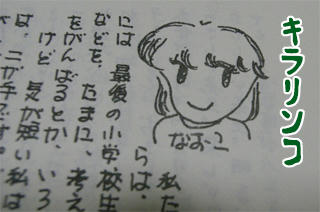 キラリンコ
なおこ
私た
らは、
には 最後の小学校生
などを、たまに、考え
をがんばるとか、いろ
けど、気が短い私は
は、ニガ手です。